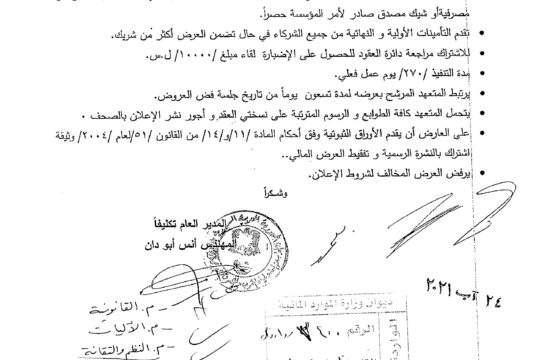 مصرفية أو شيك مصدق صادر لأمر المؤسسة حصراً.
• تقدم التأمينات الأولية و النهائية من جميع الشركاء في حال تضمن العرض أكثر من شريك.
• للاشتراك مراجعة دائرة العقود للحصول على الإضبارة لقاء مبلغ /١٠٠٠٠/ ل.س.
• مدة التنفيذ /٢٧٠/ يوم عمل فعلي.
• يرتبط المتعهد المرشح بعرضه لمدة تسعون يوماً من تاريخ جلسة فض العروض.
• يتحمل المتعهد كافة الطوابع و الرسوم المترتبة على نسختي العقد و أجور نشر الإعلان بالصحف .
• على العارض أن يقدم الأوراق الثبوتية وفق أحكام المادة /١١/و/١٤/ من القانون /٥١/لعام /٢٠٠٤/ وثيقة
اشتراك بالنشرة الرسمية و تفقيط العرض المالي..
• يرفض العرض المخالف لشروط الإعلان.
وشكراً
المدير العام تكليفاً
المهندس أنس أبو دان
٢٤ آب ٢٠٢١
ديوان وزارة الموارد المائية
الرقم
الواردة
– م. القانونية
– م. الآليات
– م. النظم والتقانة